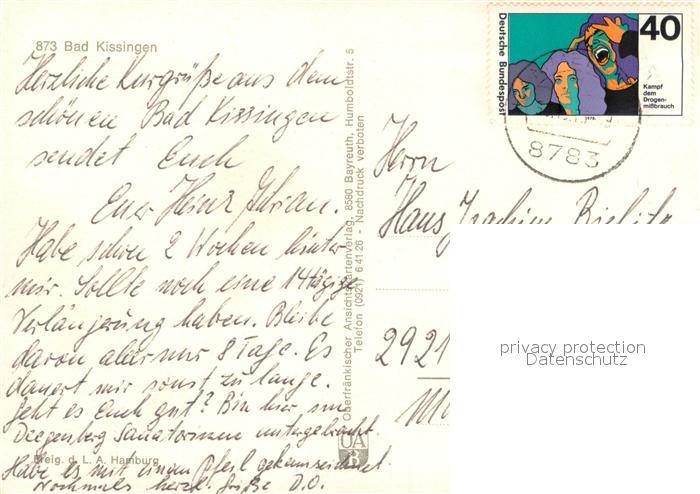 873 Bad Kissingen
Herzliche Kurgrüße aus dem
schönen Bad Kissingen
sendet Euch
Euer Heinz
Habe schon 2 Wochen hinter
mir. Sollte noch eine 14tägige
Verlängerung haben. Bleibe
davon aber nur 8 Tage. Es
dauert mir sonst zu lange.
Geht es Euch gut? Bin hier im
Deegenberg Sanatorium untergebracht.
Freig. d. L. A. Hamburg
Habe es mit einem Pfeil gekennzeichnet.
Nochmals herzl. Grüße D.O.
Oberfränkischer Ansichtskartenverlag, 8580 Bayreuth, Humboldtstr. 5
Telefon (0921) 6 41 26 - Nachdruck verboten
UA
B
Deutsche Bundespost
40
Kampf
dem
Drogen-
mißbrauch
1975
8783
Herrn
Hans Joachim
2921
privacy protection
Datenschutz